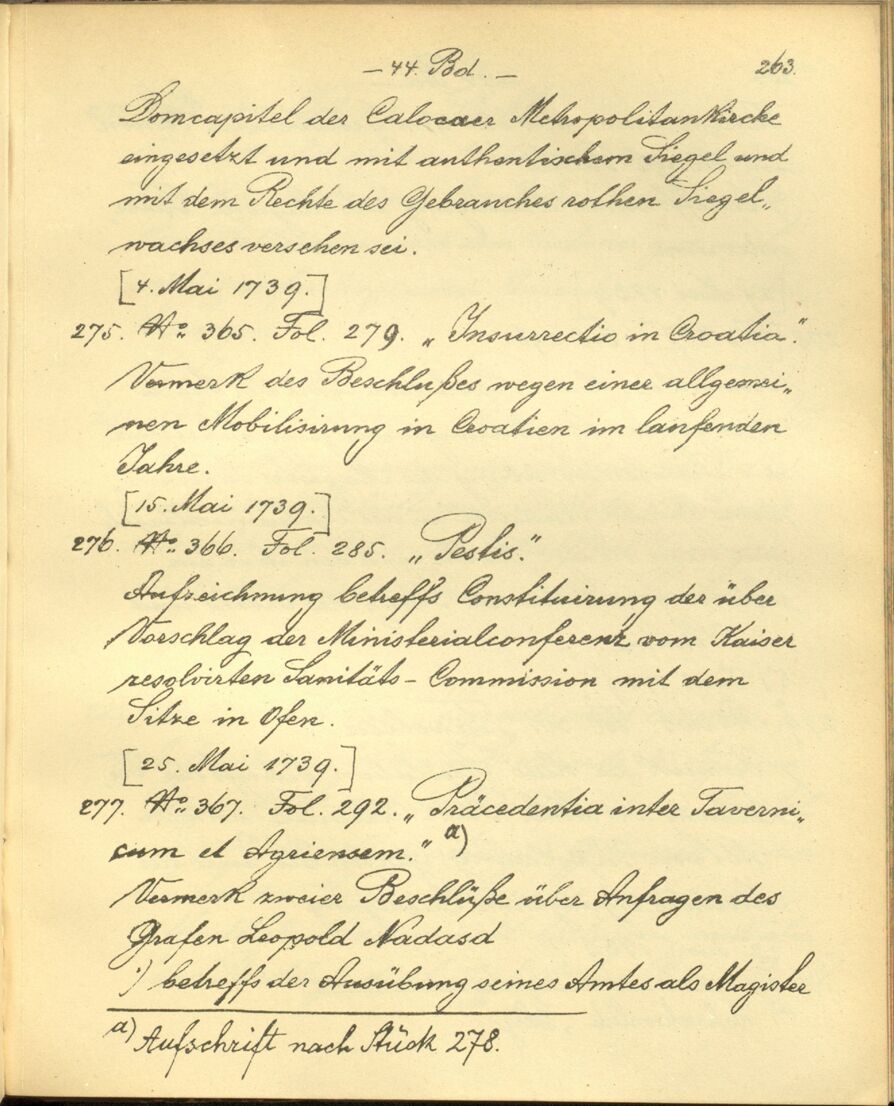 – 44. Bd. –
263.
Domcapitel der Calocaer Metropolitankirche
eingesetzt und mit authentischem Siegel und
mit dem Rechte des Gebrauches rothen Siegel„
wachses versehen sei.
[4. Mai 1739.]
275. No. 365. Fol. 279. „Insurrectio in Croatia".
Vermerk des Beschlußes wegen einer allgemei„
nen Mobilisirung in Croatien im laufenden
Jahre.
[15. Mai 1739.]
276. No. 366. Fol. 285. „Pestis".
Aufzeichnung betreffs Constituirung der über
Vorschlag der Ministerialconferenz vom Kaiser
resolvirten Sanitäts-Commission mit dem
Sitze in Ofen.
[25. Mai 1739.]
277. No. 367. Fol. 292. „Präcedentia inter Taverni„
cum et Agriensem." a)
Vermerk zweier Beschlüße über Anfragen des
Grafen Leopold Nadasd
·/ betreffs der Ausübung seines Amtes als Magister
a) Aufschrift nach Stück 278.